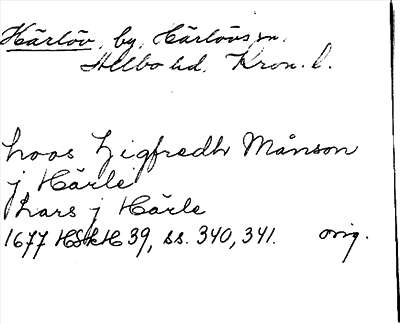 Härlöv, by, Härlövs sn.
Allbo hd. Kron. l.
hoos Sigfredh Månson
j Härle
Lars j Härle
1677 HSH H 39, ss. 340, 341. orig.